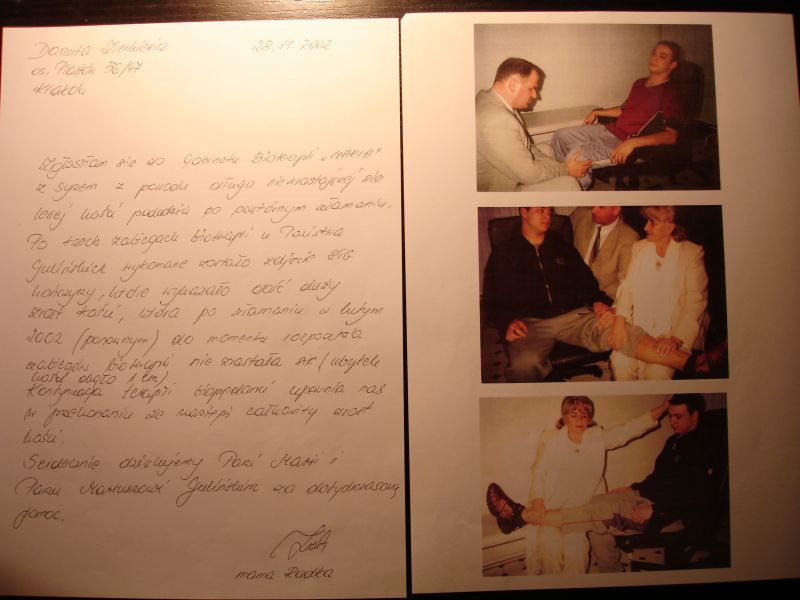 Danuta
28.11.2002
os. Piastów 56/47
Kraków
Zgłosiłam się do Gabinetu Bioterapii "MARIA"
z synem z powodu długo niezrastającej się
lewej kości podudzia po powtórnym złamaniu.
Po trzech zabiegach bioterapii u Państwa
Gulińskich wykonane zostało zdjęcie RTG
kończyny, które wykazało dość duży
zrost kości, która po złamaniu w lutym
2002 (ponownym) do momentu rozpoczęcia
zabiegów bioterapii nie zrastała się (ubytek
kości około 1 cm)
Kontynuacja terapii bioprądami upewnia nas
w przekonaniu że nastąpi całkowity zrost
kości.
Serdecznie dziękujemy Pani Marii i
Panu Mariuszowi Gulińskim za dotychczasową
pomoc.
mama Radka